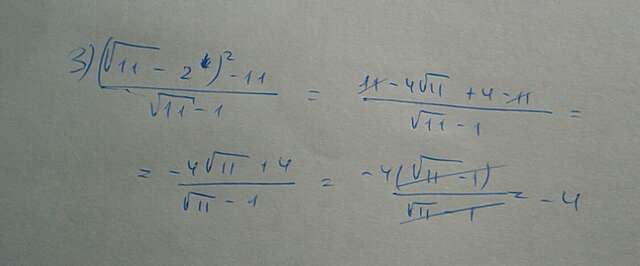 3) ((√11 - 2)² - 11)/(√11 - 1) = (11 - 4√11 + 4 - 11)/(√11 - 1) =
= (-4√11 + 4)/(√11 - 1) = (-4(√11 - 1))/(√11 - 1) = -4